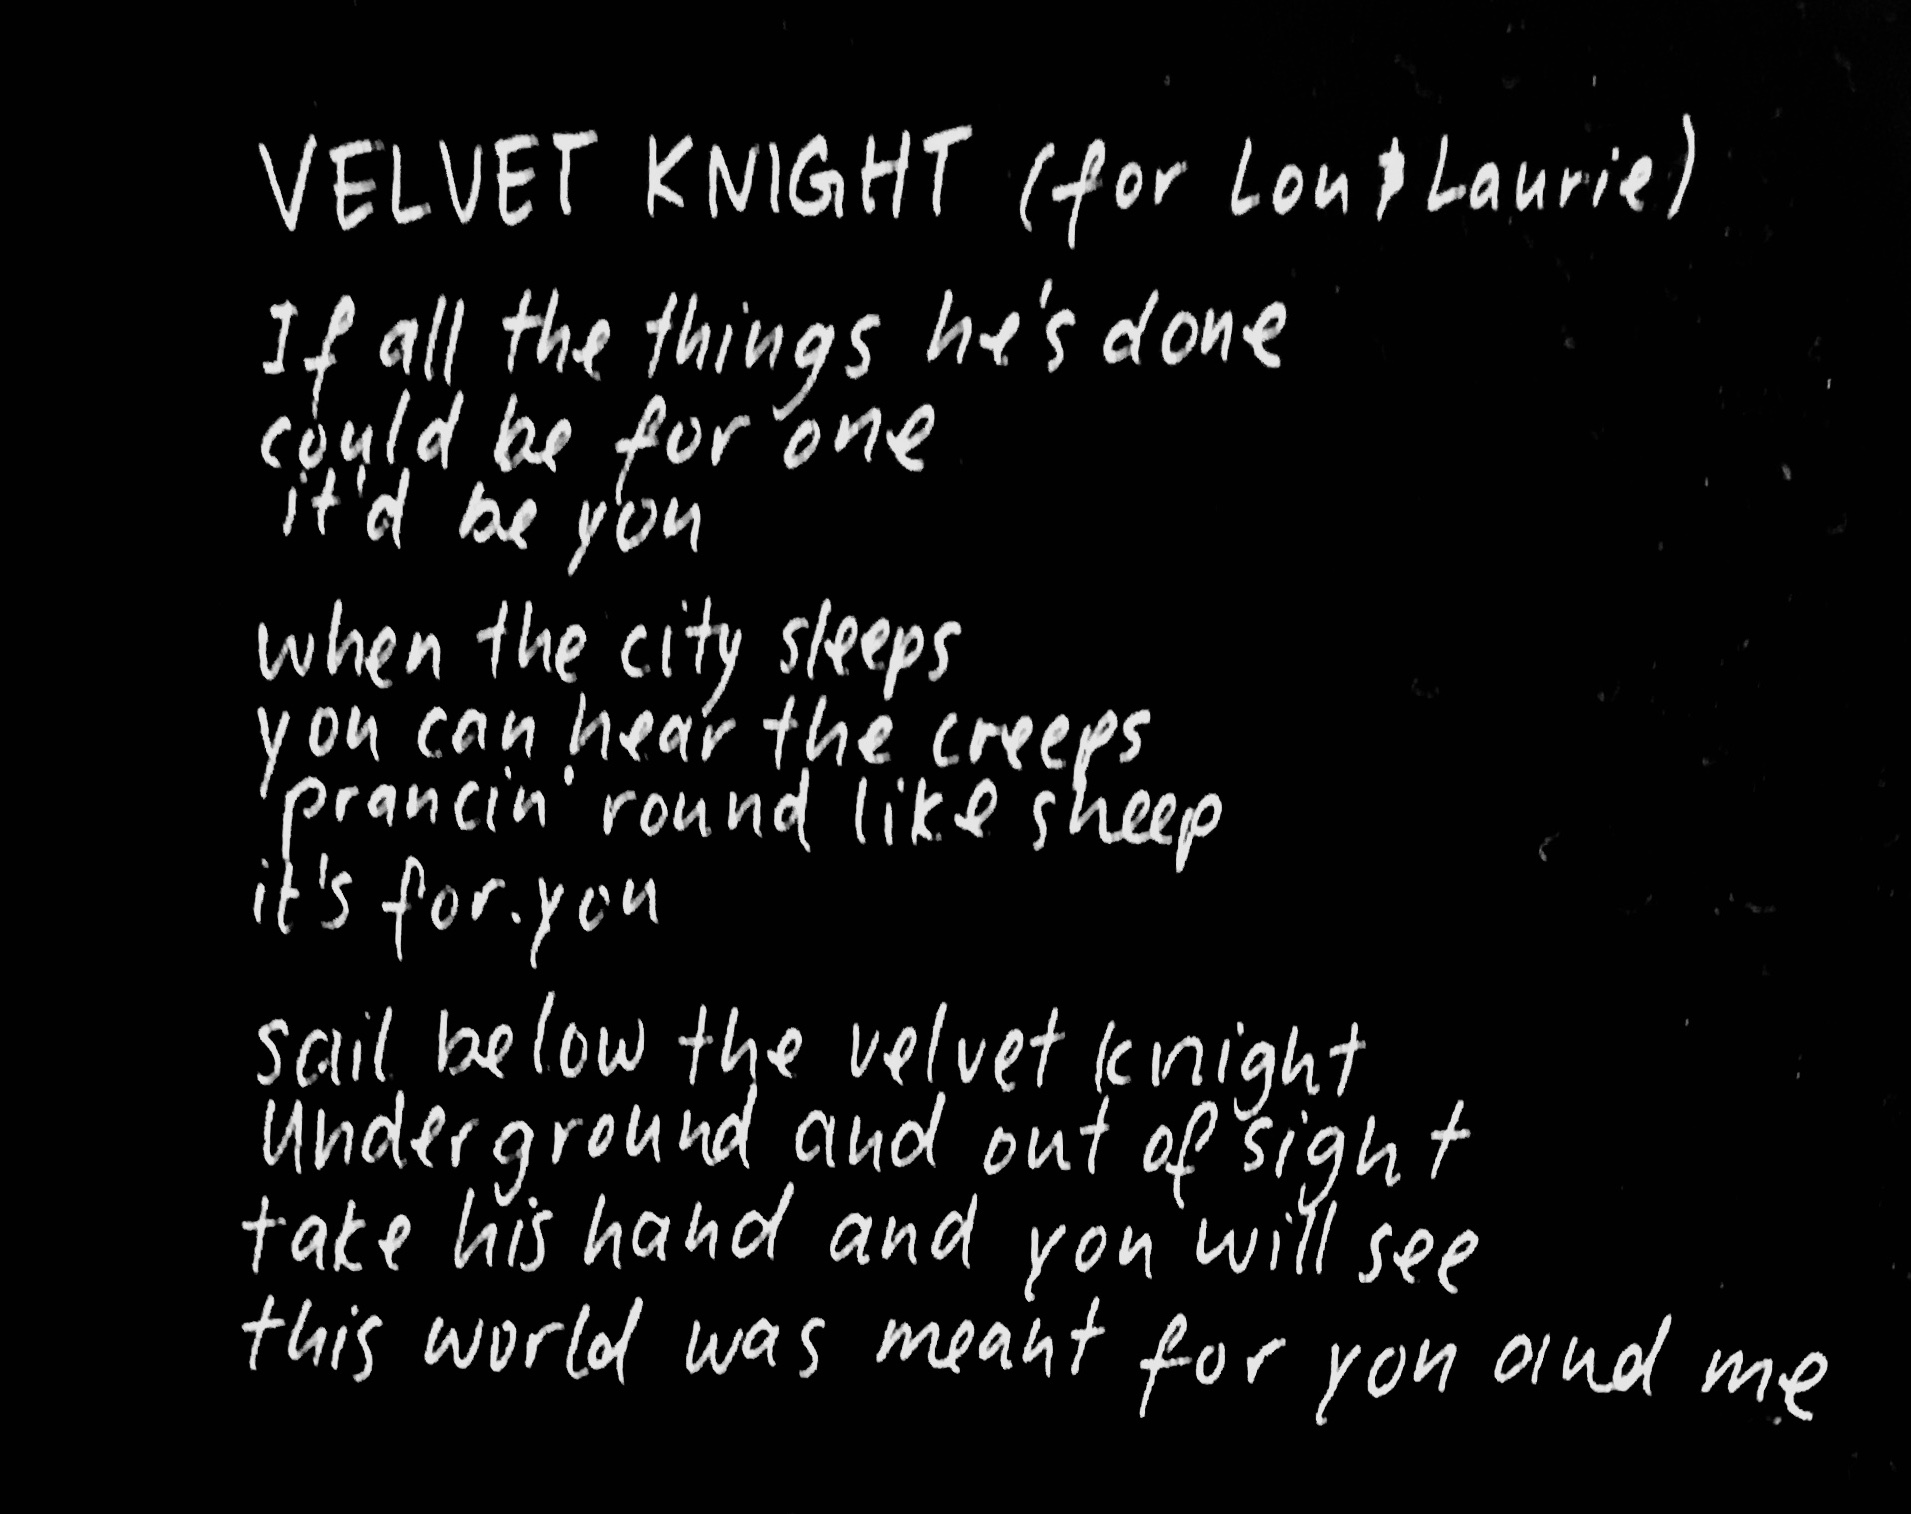 VELVET KNIGHT (for Lou & Laurie)
If all the things he's done
could be for one
it'd be you
when the city sleeps
you can hear the creeps
prancin' round like sheep
it's for you
sail below the velvet knight
Underground and out of sight
take his hand and you will see
this world was meant for you and me